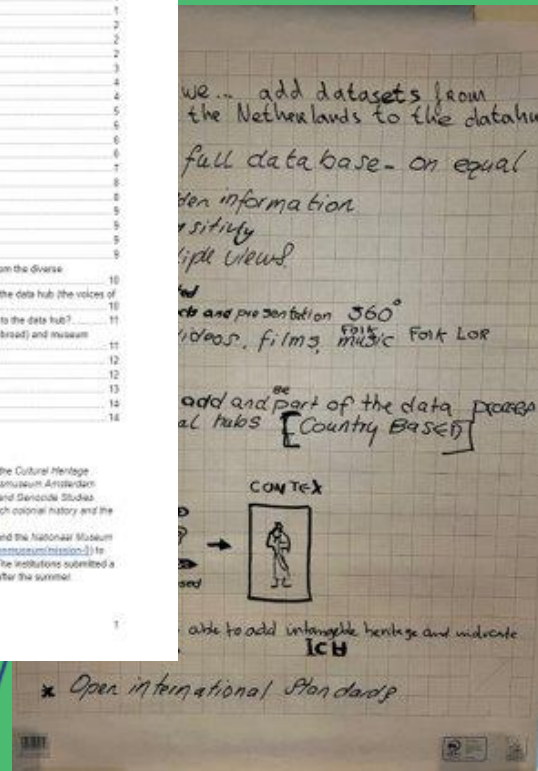 1
2
2
2
3
4
4
5
5
6
6
7
8
8
9
9
9
9
om the diverse
10
the data hub (the voices of
10
to the data hub? 11
broad) and museum
11
12
12
13
14
14
the Cultural Heritage
and Genocide Studies
ch colonial history and the
and the Nationaal Museum
to
The institutions submitted a
after the summer.
1
we... add datasets from
the Netherlands to the datahu
full database - on equal
den information
sitivity
iple views
and presentation 360°
ideos, films, folk music Folk LOR
add and be part of the data process
al hubs [Country Based]
CONTEX
sed
able to add intangible heritage and indicate
ICH
* Open international Standards